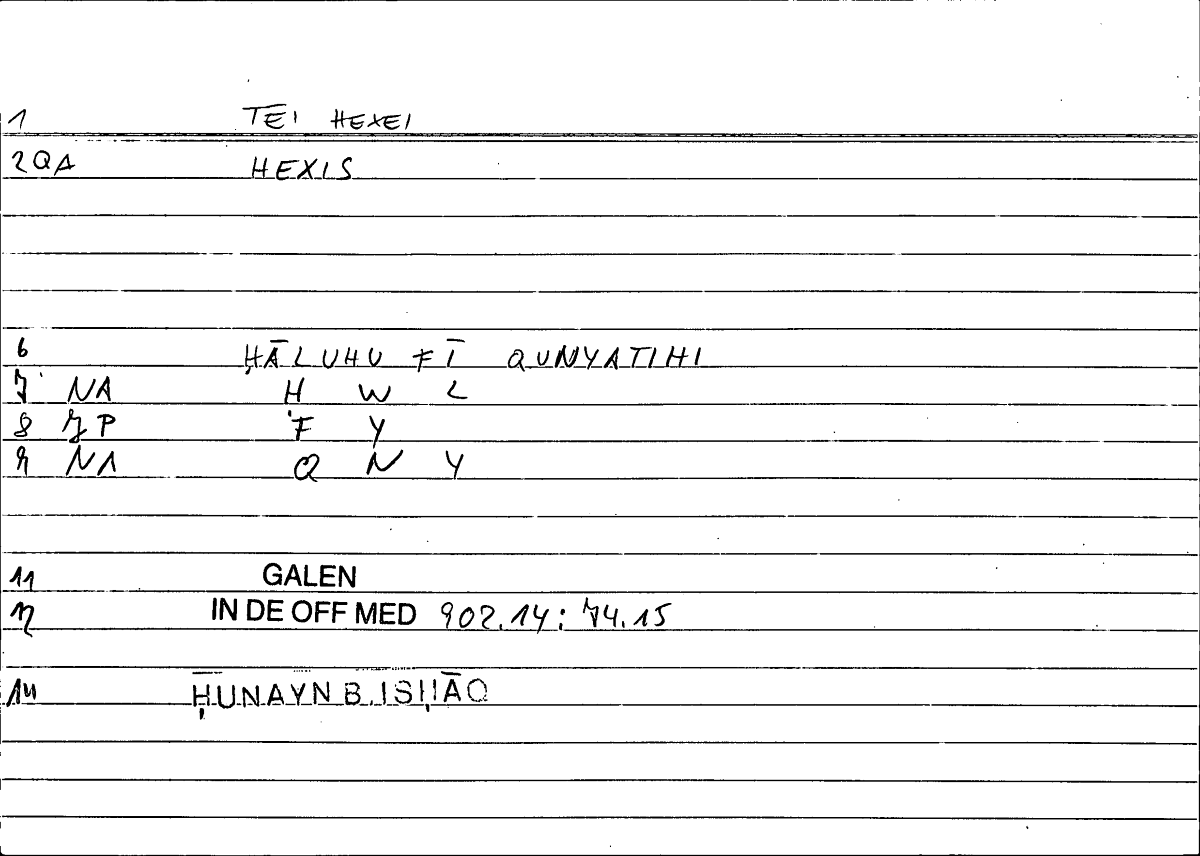 1 TEI HEXEI
2 QA HEXIS
6 ḤĀLUHU FĪ QUNYATIHI
7 NA H W L
8 7P F Y
9 NA Q N Y
11 GALEN
12 IN DE OFF MED 902.14: 74.15
14 ḤUNAYN B. ISḤĀQ